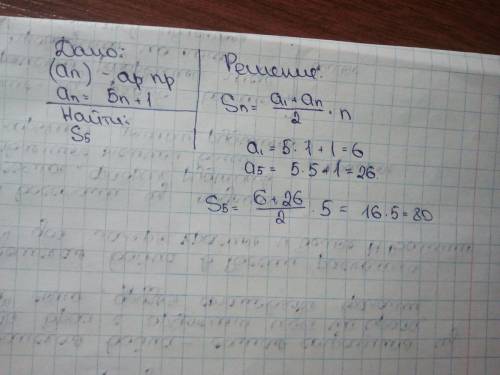 Дано:
(an) - ар пр
an = 5n+1
Найти:
S5
Решение:
Sn = (a1 + an)/2 · n
a1 = 5 · 1 + 1 = 6
a5 = 5 · 5 + 1 = 26
S5 = (6+26)/2 · 5 = 16 · 5 = 80